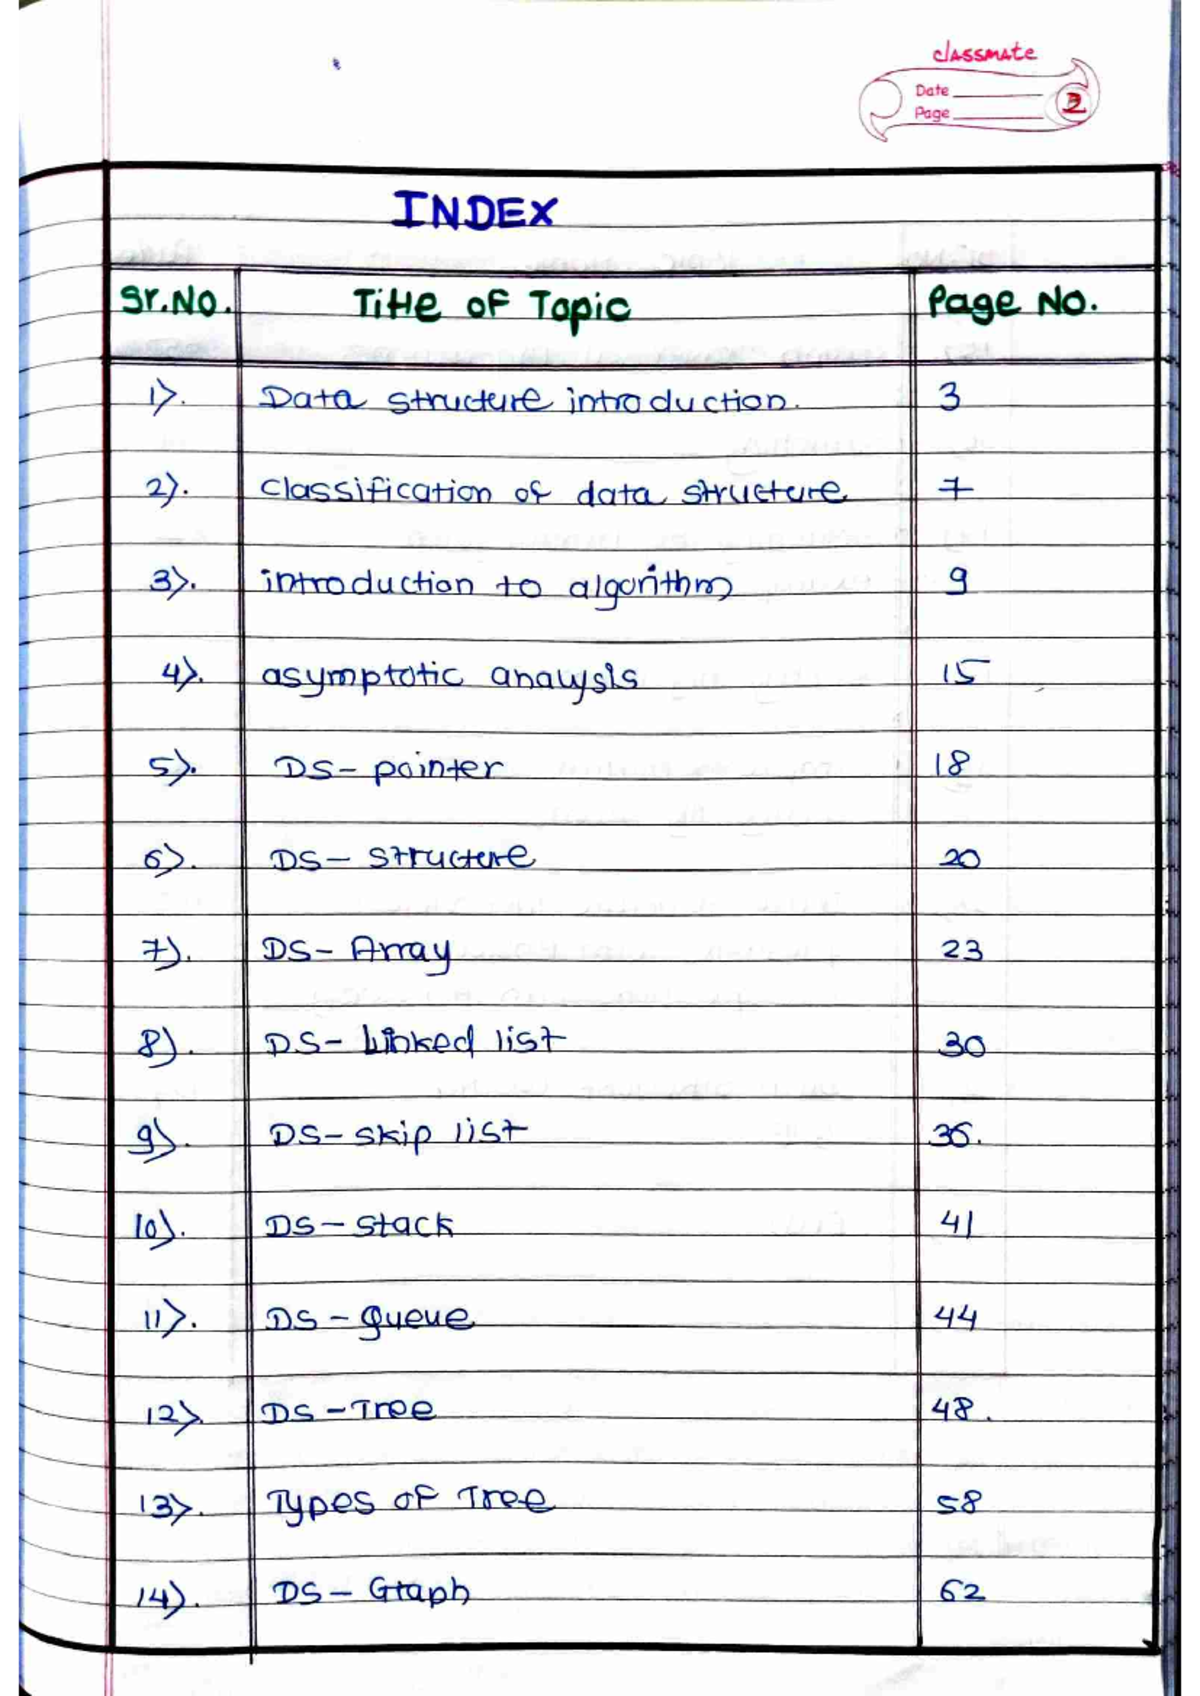 classmate
Date
Page 2
INDEX
Sr.No. Title of Topic Page No.
1). Data structure introduction. 3
2). Classification of data structure 7
3). introduction to algorithm 9
4). asymptotic analysis 15
5). DS- pointer 18
6). DS- structure 20
7). DS- Array 23
8). DS- Linked list 30
9). DS- skip list 36.
10). DS- stack 41
11). DS - queue 44
12). DS - Tree 48.
13). Types of Tree 58
14). DS - Graph 62